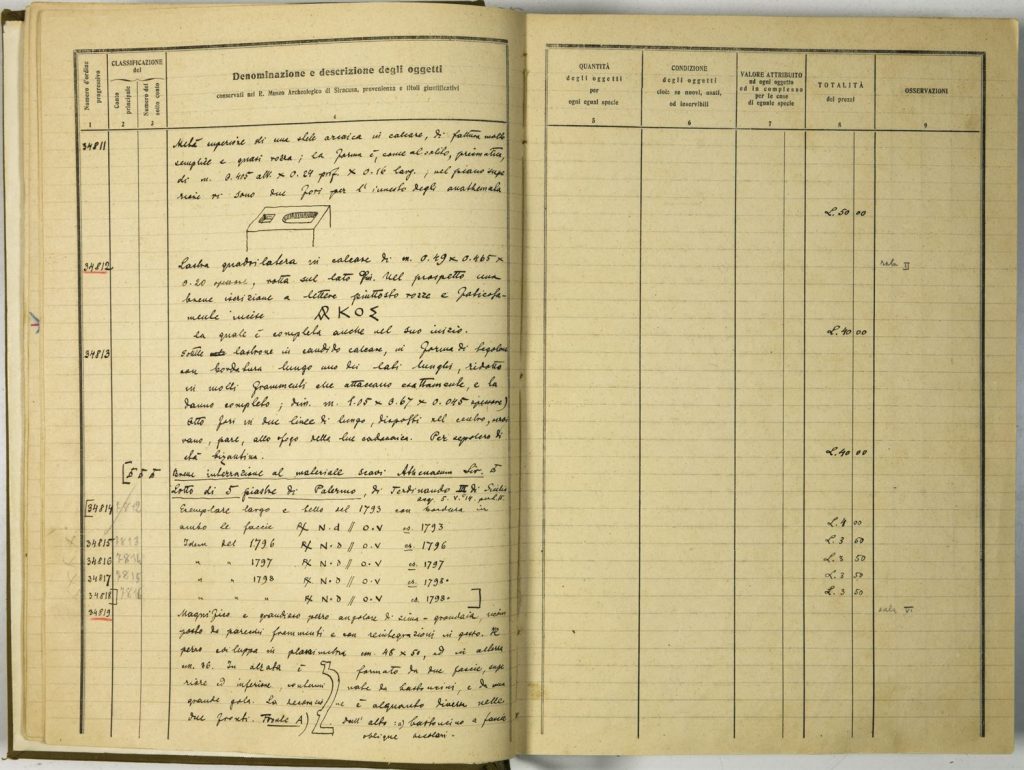 Numero d'ordine progressivo
CLASSIFICAZIONE del
Conto principale
Numero del sotto conto
Denominazione e descrizione degli oggetti
conservati nel R. Museo Archeologico di Siracusa, provenienza e titoli giustificativi
1 2 3 4
34811 Metà superiore di una stele arcaica in calcare, di fattura molto
semplice e quasi rozza; la forma è, come al solito, prismatica,
di m. 0.415 alt. × 0.24 prof. × 0.16 larg.; nel piano supe
riore vi sono due fori per l'innesto degli anathemata
34812 Lastra quadrilatera in calcare di m. 0.49 × 0.465 ×
0.20 spessore, rotta sul lato Nel prospetto una
breve iscrizione a lettere piuttosto rozze e faticosa-
mente incise ΚΟΣ
la quale è completa anche nel suo inizio.
34813 Sottile lastrone in candido calcare, in forma di tegolone
con bordatura lungo uno dei lati lunghi, ridotto
in molti frammenti che attaccano esattamente, e la
danno completo; dim. m. 1.05 × 0.67 × 0.045 spessore)
Otto fori in due linee di lungo, disposti nel centro, servi
vano, pare, allo sfogo della cadaverica. Per sepolcro di
età bizantina.
Breve interruzione al materiale scavi Athenaeum Sir.
Lotto di 5 piastre di Palermo, di Ferdinando III di Sicilia
34814 7812 Esemplare largo e bello del 1793 con bordura in
ambo le faccie N·d // O·V es. 1793
34815 7813 Idem del 1796 N·D // O·V es. 1796
34816 7814 " " 1797 N·D // O·V es. 1797
34817 7815 " " 1798 N·D // O·V es. 1798.
34818 7816 " " " N·D // O·V es. 1798.
34819 Magnifico e grandioso pezzo angolare di sima-grondaia, ricom
posto da parecchi frammenti e con reintegrazioni in gesto. Il
pezzo sviluppa in planimetria cm. 48 × 50, ed in altezza
cm. 36. In alzata è formato da due faccie, supe
riore ed inferiore, nate da bastoncini, e da una
grande gola. La ne è alquanto diversa nelle
due fronti. A) dall'alto: a) bastoncino a fasce
oblique
QUANTITÀ degli oggetti per ogni egual specie
CONDIZIONE degli oggetti cioè: se nuovi, usati, od inservibili
VALORE ATTRIBUITO ad ogni oggetto ed in complesso per le cose di eguale specie
TOTALITÀ dei prezzi
OSSERVAZIONI
5 6 7 8 9
L. 50 00
sala II
L. 40 00
L. 40 00
L. 4 00
L. 3 50
L. 3 50
L. 3 50
L. 3 50
sala VI